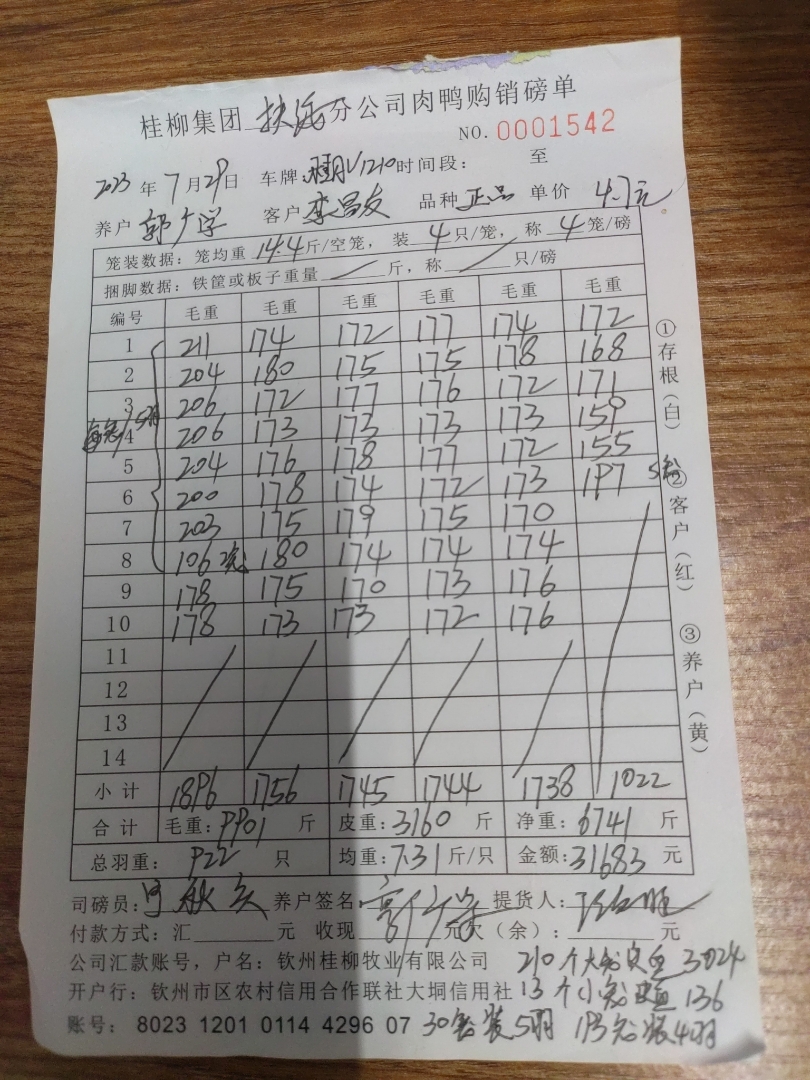 桂柳集团 扶绥 分公司肉鸭购销磅单
NO. 0001542
2023 年 7 月 29 日 车牌: 湘V1210 时间段: 至
养户 郭广学 客户 李昌友 品种 正品 单价 4.7元
笼装数据: 笼均重 14.4 斤/空笼, 装 4 只/笼, 称 4 笼/磅
捆脚数据: 铁筐或板子重量 / 斤, 称 / 只/磅
编号 毛重 毛重 毛重 毛重 毛重 毛重
1 211 174 172 177 174 172
2 204 180 175 175 178 168
3 206 172 177 176 172 171
4 206 173 173 173 173 159
5 204 176 178 177 172 155
6 200 178 174 172 173 197
7 203 175 179 175 170
8 106 2笼 180 174 174 174
9 178 175 170 173 176
10 178 173 173 172 176
11
12
13
14
小计 1896 1756 1745 1744 1738 1022
合计 毛重: 9901 斤 皮重: 3160 斤 净重: 6741 斤
总羽重: 922 只 均重: 7.31 斤/只 金额: 31683 元
司磅员: 养户签名: 提货人:
付款方式: 汇 元 收现 元 欠(余): 元
公司汇款账号, 户名: 钦州桂柳牧业有限公司 210个大笼 3024
开户行: 钦州市区农村信用合作联社大垌信用社 13个小笼 136
账号: 8023 1201 0114 4296 07 30笼装5羽 193笼装4羽
①存根(白)
②客户(红)
③养户(黄)